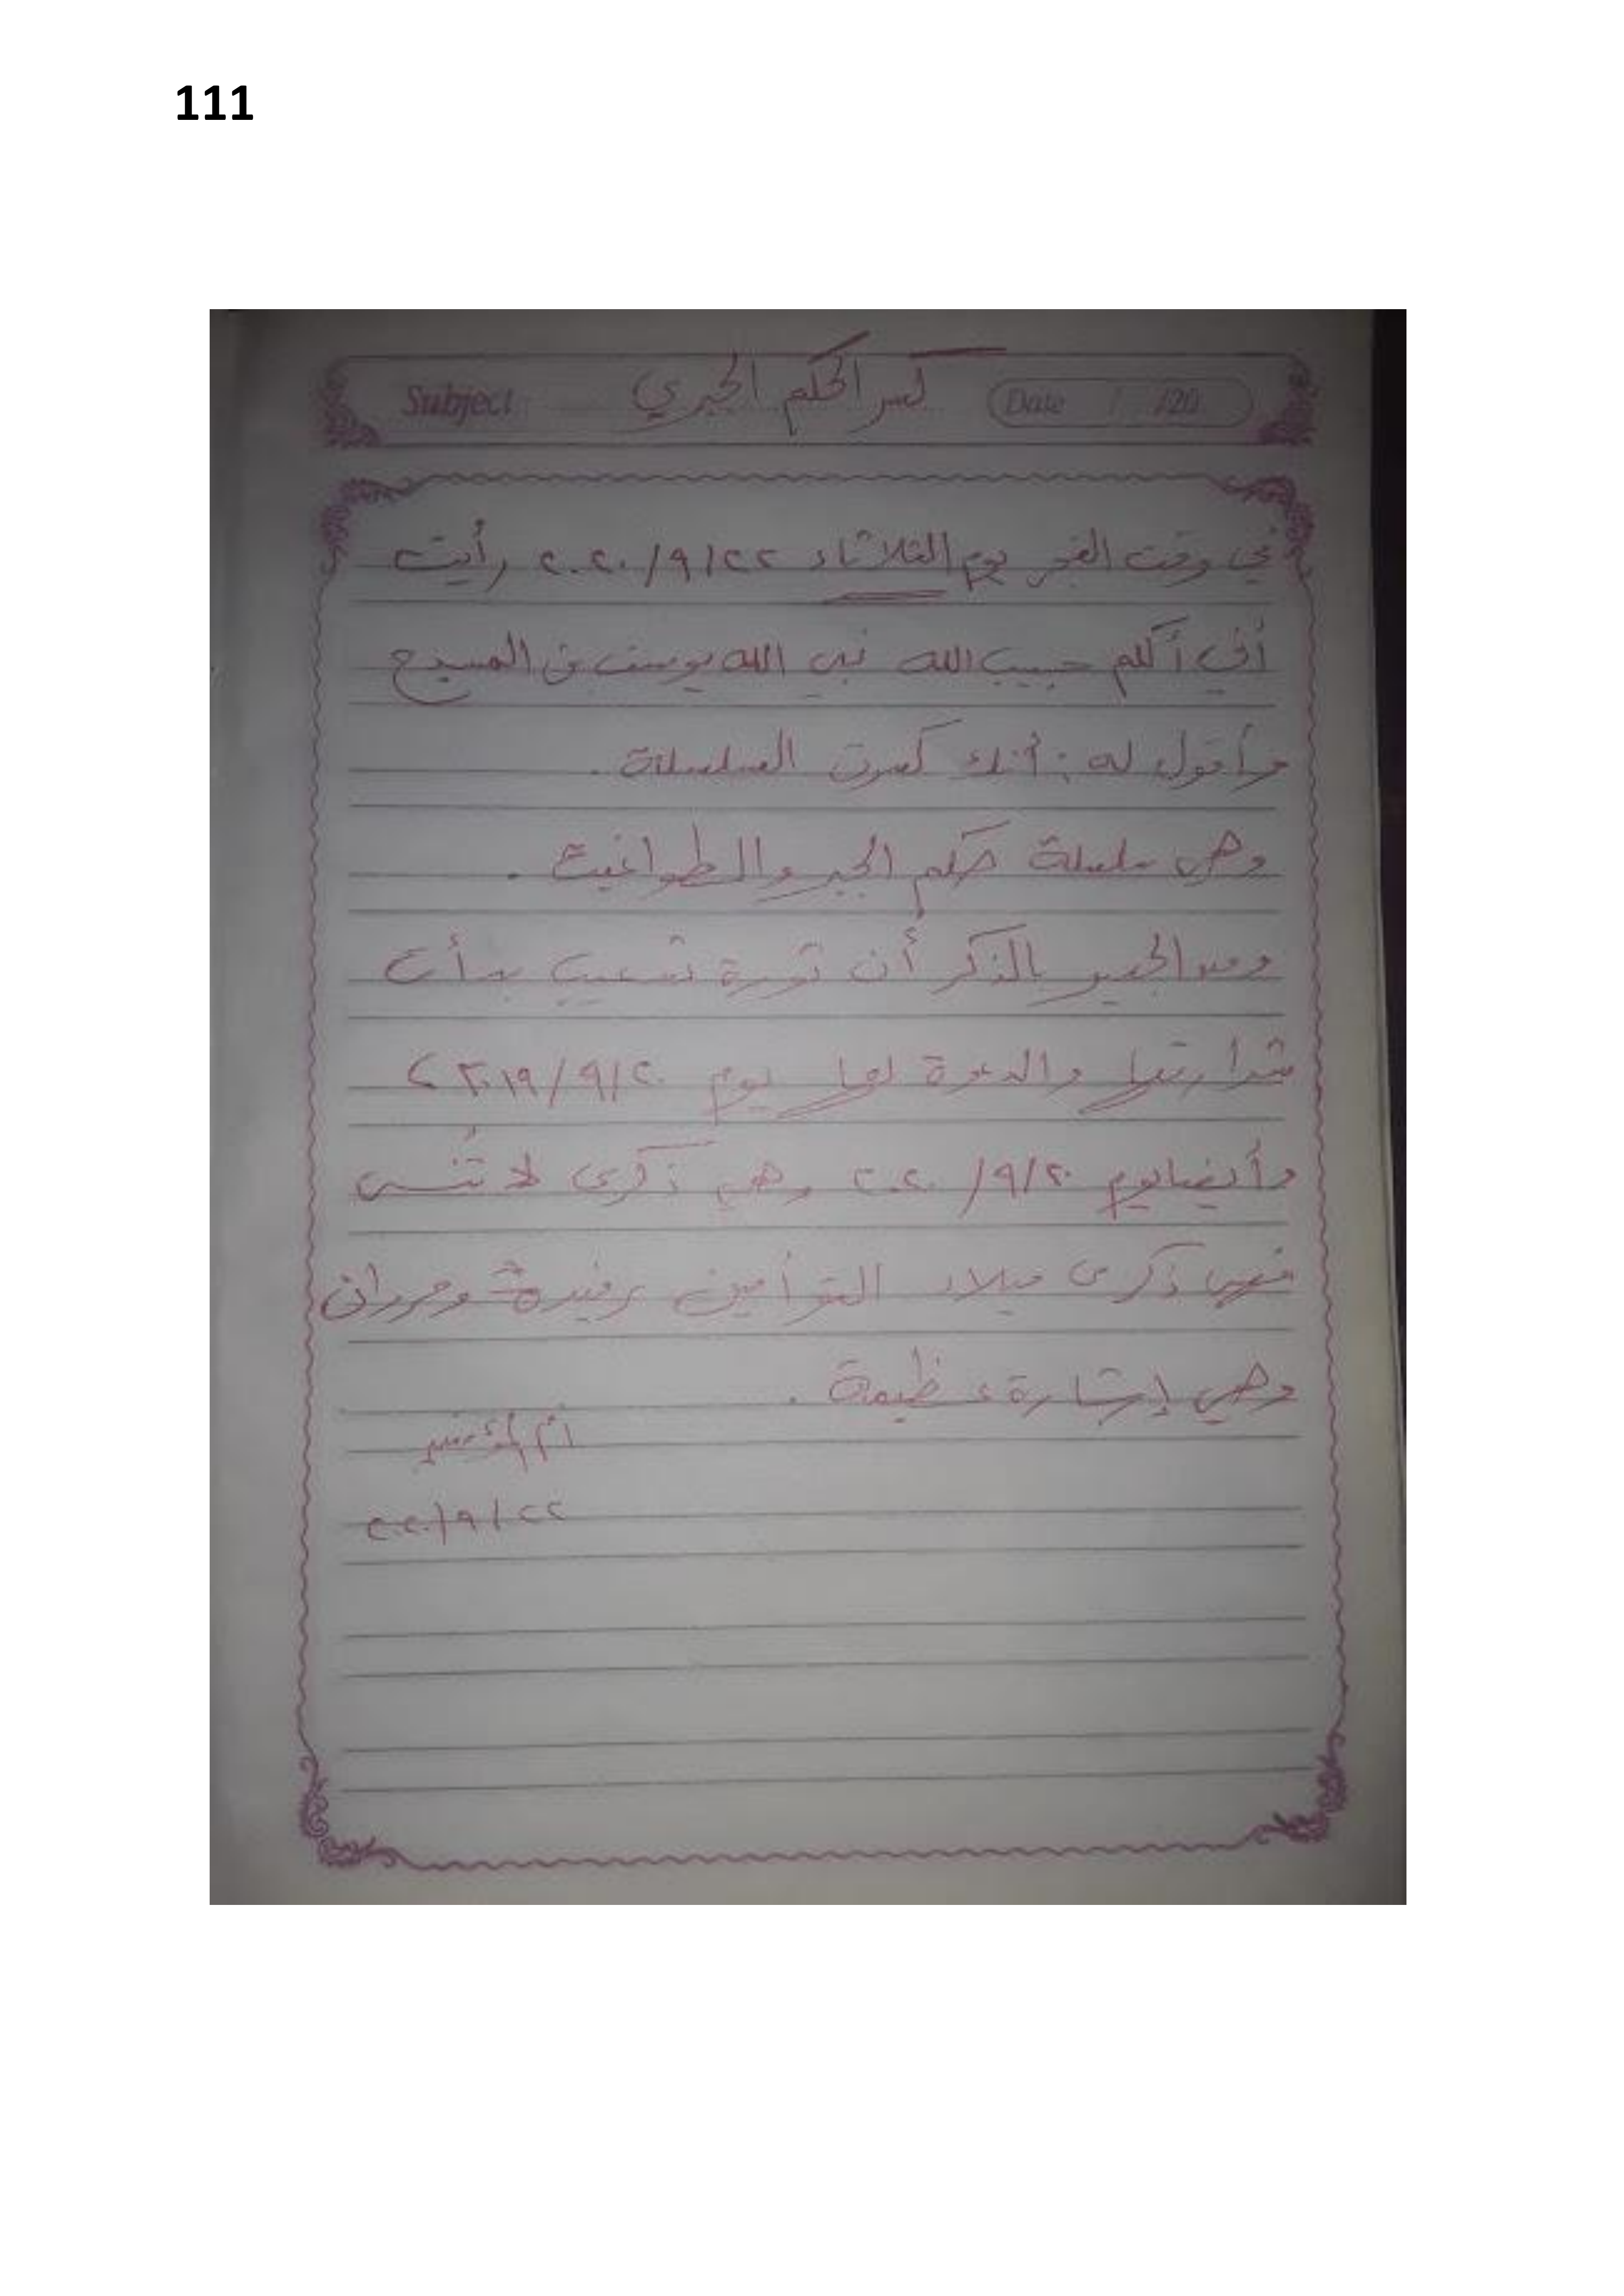 111
كسر الحكم الجبري
Subject Date / /20
في وقت الفجر يوم الثلاثاء ٢٢/٩/٢٠٢٠ رأيت
أني أكلم حبيب الله نبي الله يوسف بن المسيح
وأقول له : أنك كسرت السلسلة .
وهي سلسلة حكم الجبر والطواغيت .
ومن الجدير بالذكر أن ثورة تشعيب بدأت
شرارتها والدعوة لها يوم ٢٠/٩/٢٠١٩
وأيضا يوم ٢٠/٩/٢٠٢٠ وهي ذكرى لا تُنسى
فهي ذكرى ميلاد التوأمين رفيدة ومروان
وهي إشارة عظيمة .
أم المؤمنين
٢٢/٩/٢٠٢٠